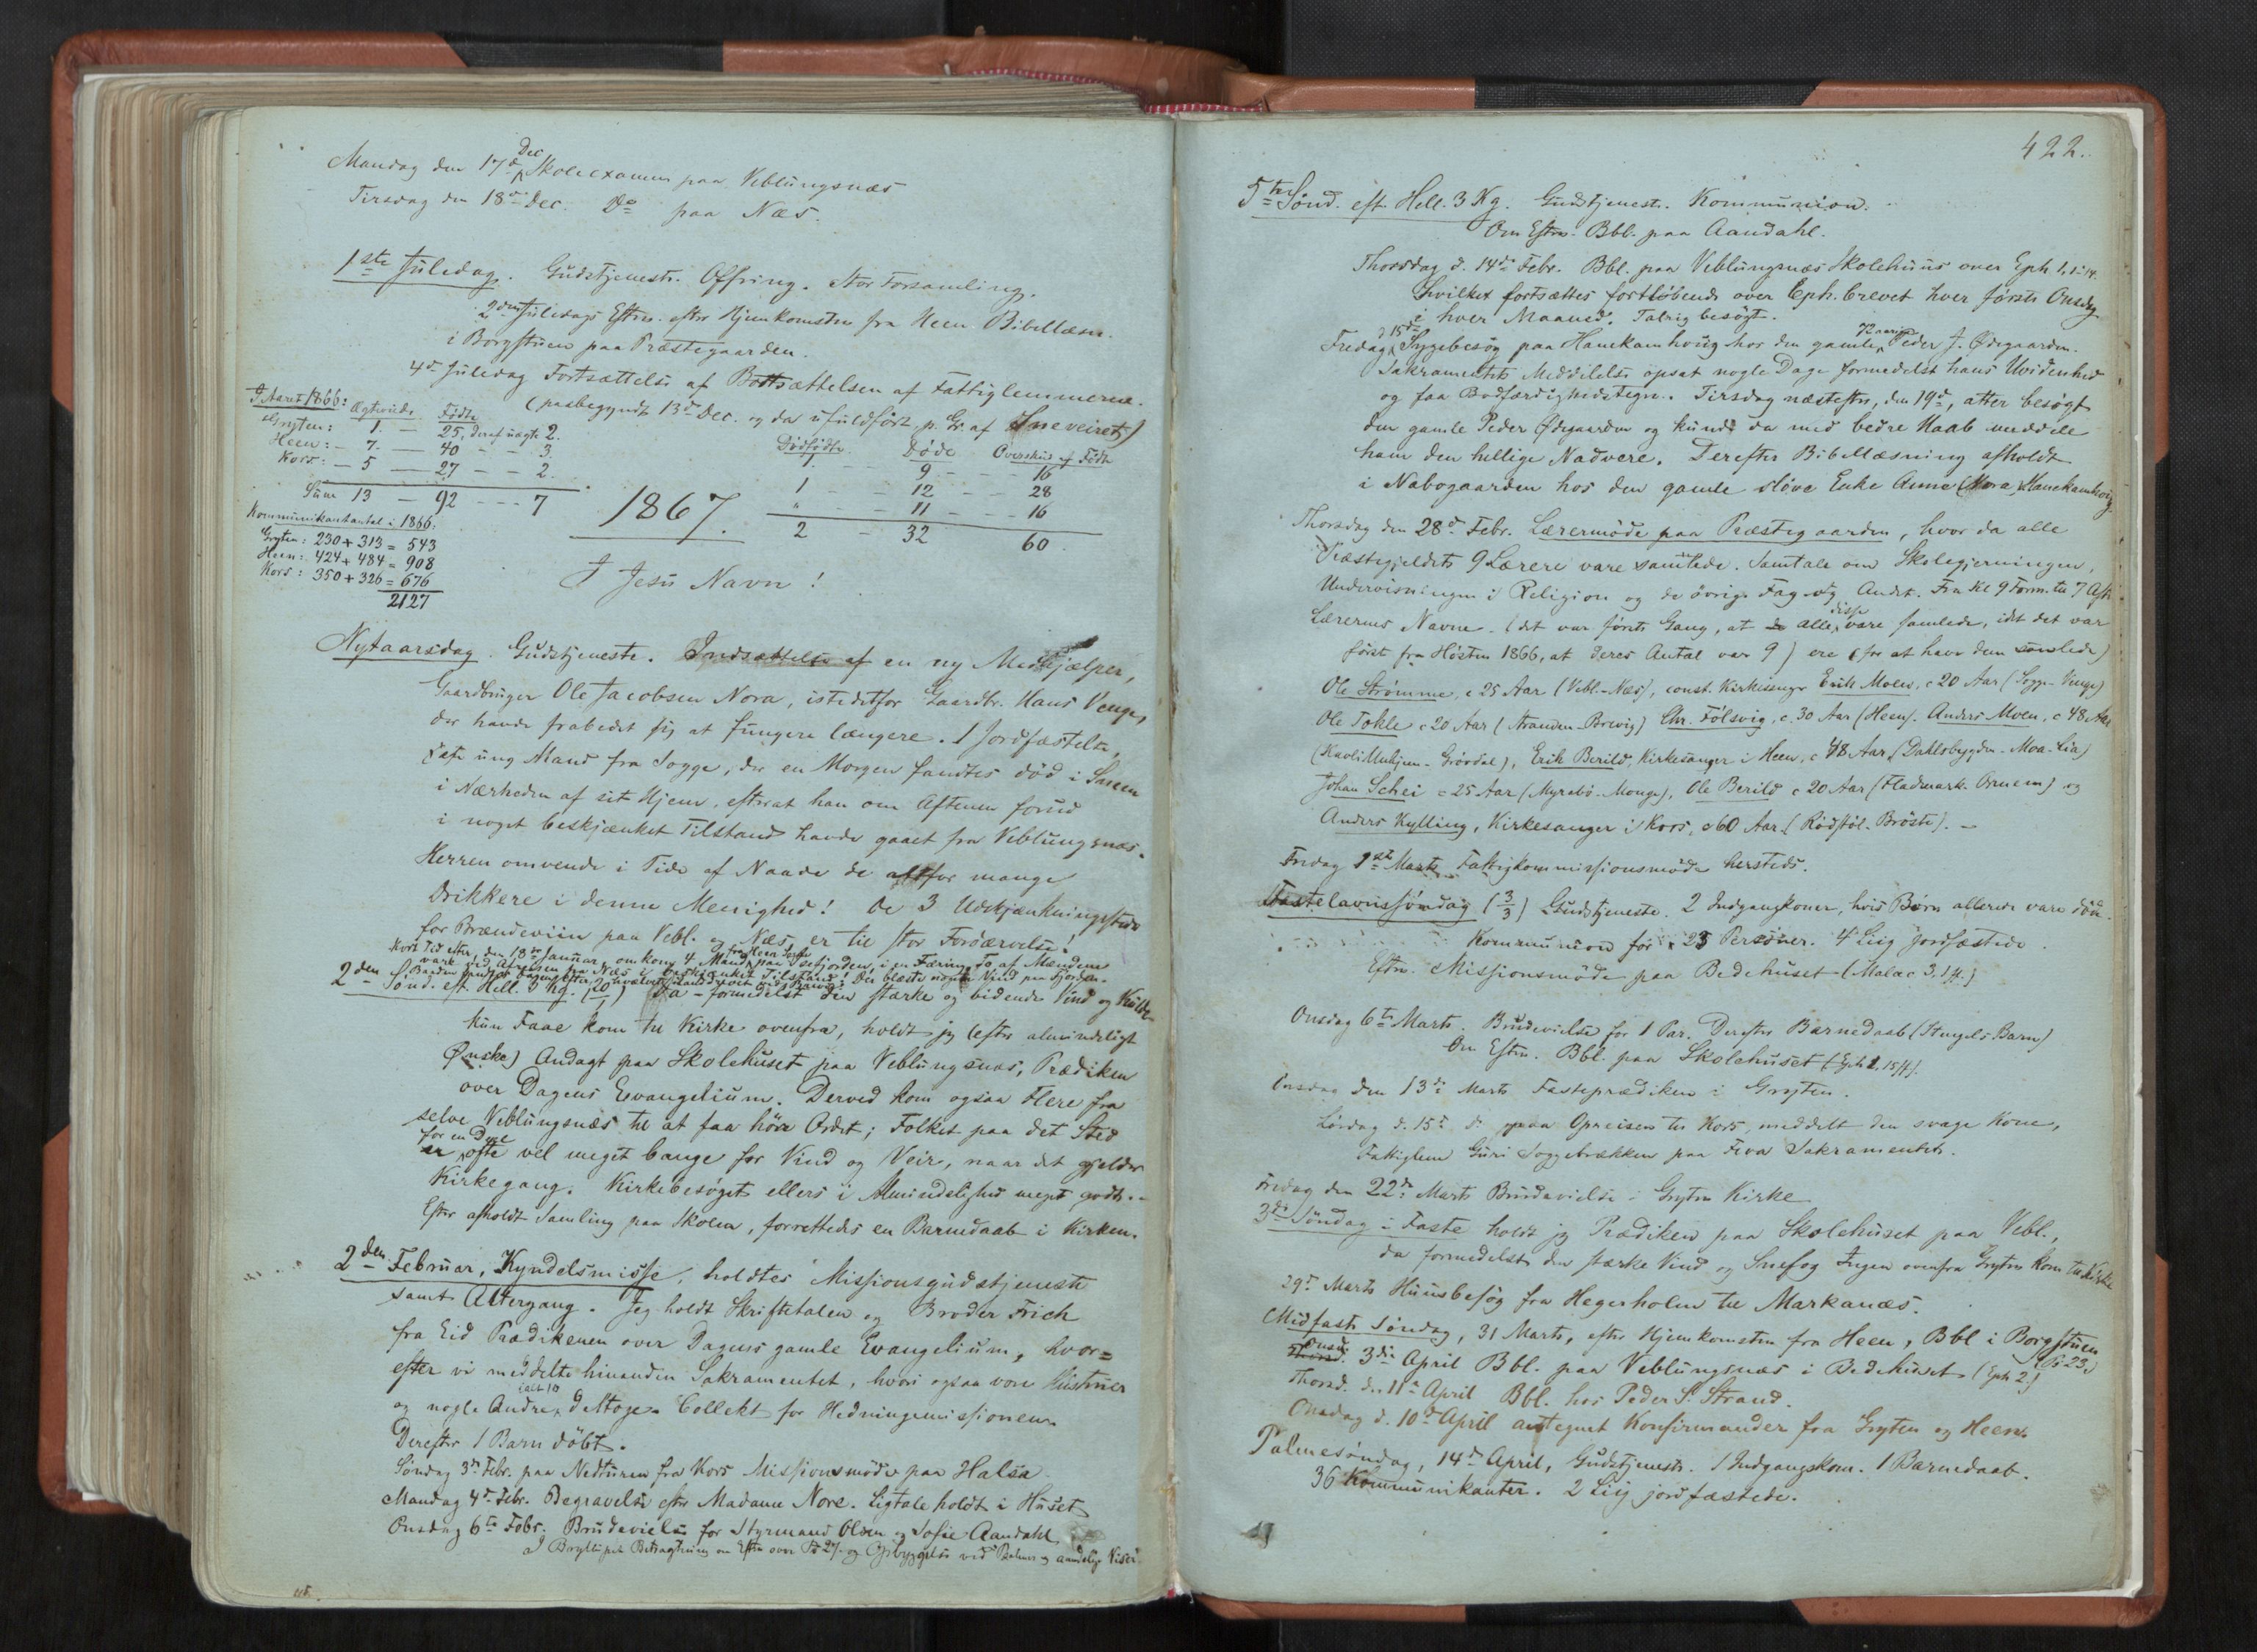 Mandag den 17d Dec Skoleexamen paa Veblungsnæs
Tirsdag den 18de Dec. Do paa Næs.
1ste Juledag. Gudstjeneste. Offring. Stor Forsamling.
2den Juledags Eftrm. efter Hjemkomsten fra Heen Bibellæsn.
i Borgstuen paa Præstegaarden.
4de Juledag Fortsættelse af Bortsættelsen af Fattiglemmerne.
(paabegyndt 13de Dec. og da ufuldført, p. Gr. af Sneveiret)
I Aaret 1866: Ægteviede Fødte Dødfødte Døde Overskud af Fødte
Gryten: 1. — 25, deraf uægte 2. 1 — 9 — 16
Heen: — 7. — 40 — — 3. 1 — 12 — 28
Kors: — 5 — 27 — — 2. " — 11 — 16
Sum 13 — 92 — — 7 2 — 32 60.
Kommunikantantal i 1866:
Gryten: 230 + 313 = 543
Heen: 424 + 484 = 908
Kors: 350 + 326 = 676
2127
1867.
I Jesu Navn!
Nytaarsdag. Gudstjeneste. Indsættelse af en ny Medhjælper,
Gaardbruger Ole Jacobsen Nora, istedetfor Gaardbr. Hans Venge,
der havde frabedet sig at fungere længere. 1 Jordfæstelse,
ung Mand fra Sogge, der en Morgen fandtes død i Sneen
i Nærheden af sit Hjem, efterat han om Aftenen forud
i noget beskjænket Tilstand havde gaaet fra Veblungsnæs.
Herren omvende i Tide af Naade de altfor mange
Drikkere i denne Menighed! De 3 Udskjænkningssteder
for Brændeviin paa Vebl. og Næs er til stor Fordærvelse!
Kort Tid efter, den 18de Januar, omkom 4 Mænd fra Heen Sogn paa Isefjorden, i en Færing. To af Mændene
vare ved Afreisen fra Næs i beskjænket Tilstand! Der blæste nogen Vind paa Fjorden.
2den Sønd. eft. Hell. 3 Kg. (20/1) Da — formedelst den stærke og bidende Vind og Kulde
kun Faae kom til Kirke ovenfra, holdt jeg (efter almindeligt
Ønske) Andagt paa Skolehuset paa Veblungsnæs, Prædiken
over Dagens Evangelium. Derved kom ogsaa Flere fra
selve Veblungsnæs til at faa høre Ordet; Folket paa det Sted
er for en Deel ofte vel meget bange for Vind og Veir, naar det gjelder
Kirkegang. Kirkebesøget ellers i Almindelighed meget godt. —
Efter afholdt Samling paa Skolen, forrettedes en Barnedaab i Kirken.
2den Februar, Kyndelsmisse, holdtes Missionsgudstjeneste
samt Altergang. Jeg holdt Skriftetalen og Broder Frich
fra Eid Prædikenen over Dagens gamle Evangelium, hvor=
efter vi meddelte hinanden Sakramentet, hvori ogsaa vore Hustruer
og nogle Andre, ialt 10 deltoge. Collekt for Hedningemissionen.
Derefter 1 Barn døbt.
Søndag 3de Febr. paa Nedturen fra Kors Missionsmøde paa Halsa
Mandag 4de Febr. Begravelse efter Madame Nore. Ligtale holdt i Huset
Onsdag 6te Febr. Brudevielse for Styrmand Olsen og Sofie Aandahl
I Bryllupet Betragtning om Eftm over Ps 27. og Opbyggelse ved Psalmer og aandelige Viser.
422.
5te Sønd. eft. Hell. 3 Kg. Gudstjeneste. Kommunion.
Om Eftrm. Bbl. paa Aandahl.
Thorsdag d. 14de Febr. Bbl. paa Veblungsnæs Skolehuus over Eph. 1, 1-14.
hvilket fortsættes fortløbende over Eph. brevet hver første Onsdag
i hver Maaned. Talrig besøgt.
Fredag d 15de Sygebesøg paa Hanekamhoug hos den gamle, 72 aarige Peder J. Ødegaarden.
Sakramentets Meddelelse opsat nogle Dage formedelst hans Uvidenhed
og faa Bodfærdighedstegn. Tirsdag næstefter, den 19de, atter besøgt
den gamle Peder Ødegaarden og kunde da med bedre Haab meddele
ham den hellige Nadvere. Derefter Bibellæsning afholdt
i Nabogaarden hos den gamle sløve Enke Anne (Mora) Hanekamhoug.
Thorsdag den 28d Febr. Lærermøde paa Præstegaarden, hvor da alle
Præstegjeldets 9 Lærere vare samlede. Samtale om Skolegjerningen,
Undervisningen i Religion og de øvrige Fag og Andet. Fra Kl 9 Form. til 7 Aft.
Lærernes Navne. (det var første Gang, at de alle disse vare samlede, idet det var
først fra Høsten 1866, at deres Antal var 9) ere (for at have dem samlede)
Ole Strømme, c 25 Aar (Vebl.-Næs), const. Kirkesanger Erik Moen, c 20 Aar (Sogge-Venge)
Ole Tokle c 20 Aar (Stranden-Brevig) Chr. Fölsvig, c. 30 Aar (Heen). Anders Moen, c 48 Aar
(Havli Muhjem-Grövdal), Erik Berild, Kirkesanger i Heen, c 48 Aar, (Dahlsbygden-Moa-Lia)
Johan Schei c 25 Aar (Myrabö-Monge), Ole Berild c 20 Aar (Fladmark-Ormem) og
Anders Kylling, Kirkesanger i Kors, c 60 Aar (Rödstöl-Bröste). —
Fredag 1ste Marts Fattigkommissionsmøde hersteds.
Fastelavnssøndag (3/3) Gudstjeneste. 2 Indgangskoner, hvis Børn allerede vare døde.
Kommunion for 23 Personer. 4 Liig jordfæstede.
Eftm. Missionsmøde paa Bedehuset (Malac 3, 1 ff.)
Onsdag 6te Marts. Brudevielse for 1 Par. Derefter Barnedaab (Stengels Barn)
Om Eftm. Bbl. paa Skolehuset (Eph 1, 15 ff).
Onsdag den 13de Marts Fasteprædiken i Gryten.
Lørdag d. 15de ds paa Opreisen til Kors, meddelt den svage Kone,
Fattiglem Guri Soggebrækken paa Fiva Sakramentet.
Fredag den 22de Marts Brudevielse i Gryten Kirke
3de Søndag i Faste holdt jeg Prædiken paa Skolehuset paa Vebl.,
da formedelst den stærke Vind og Snefog Ingen ovenfra Gryten kom til Kirke
29de Marts Huusbesøg fra Hegerholm til Markanæs.
Midfaste Søndag, 31 Marts, efter Hjemkomsten fra Heen, Bbl i Borgstuen (Ps 23.)
Onsd. 3die April Bbl. paa Veblungsnæs i Bedehuset (Eph 2.)
Thorsd. den 11te April Bbl. hos Peder S. Strand.
Onsdag d. 10de April antegnet Konfirmander fra Gryten og Heen.
Palmesøndag, 14de April, Gudstjeneste. 1 Indgangskone. 1 Barnedaab.
36 Kommunikanter. 2 Liig jordfæstede.